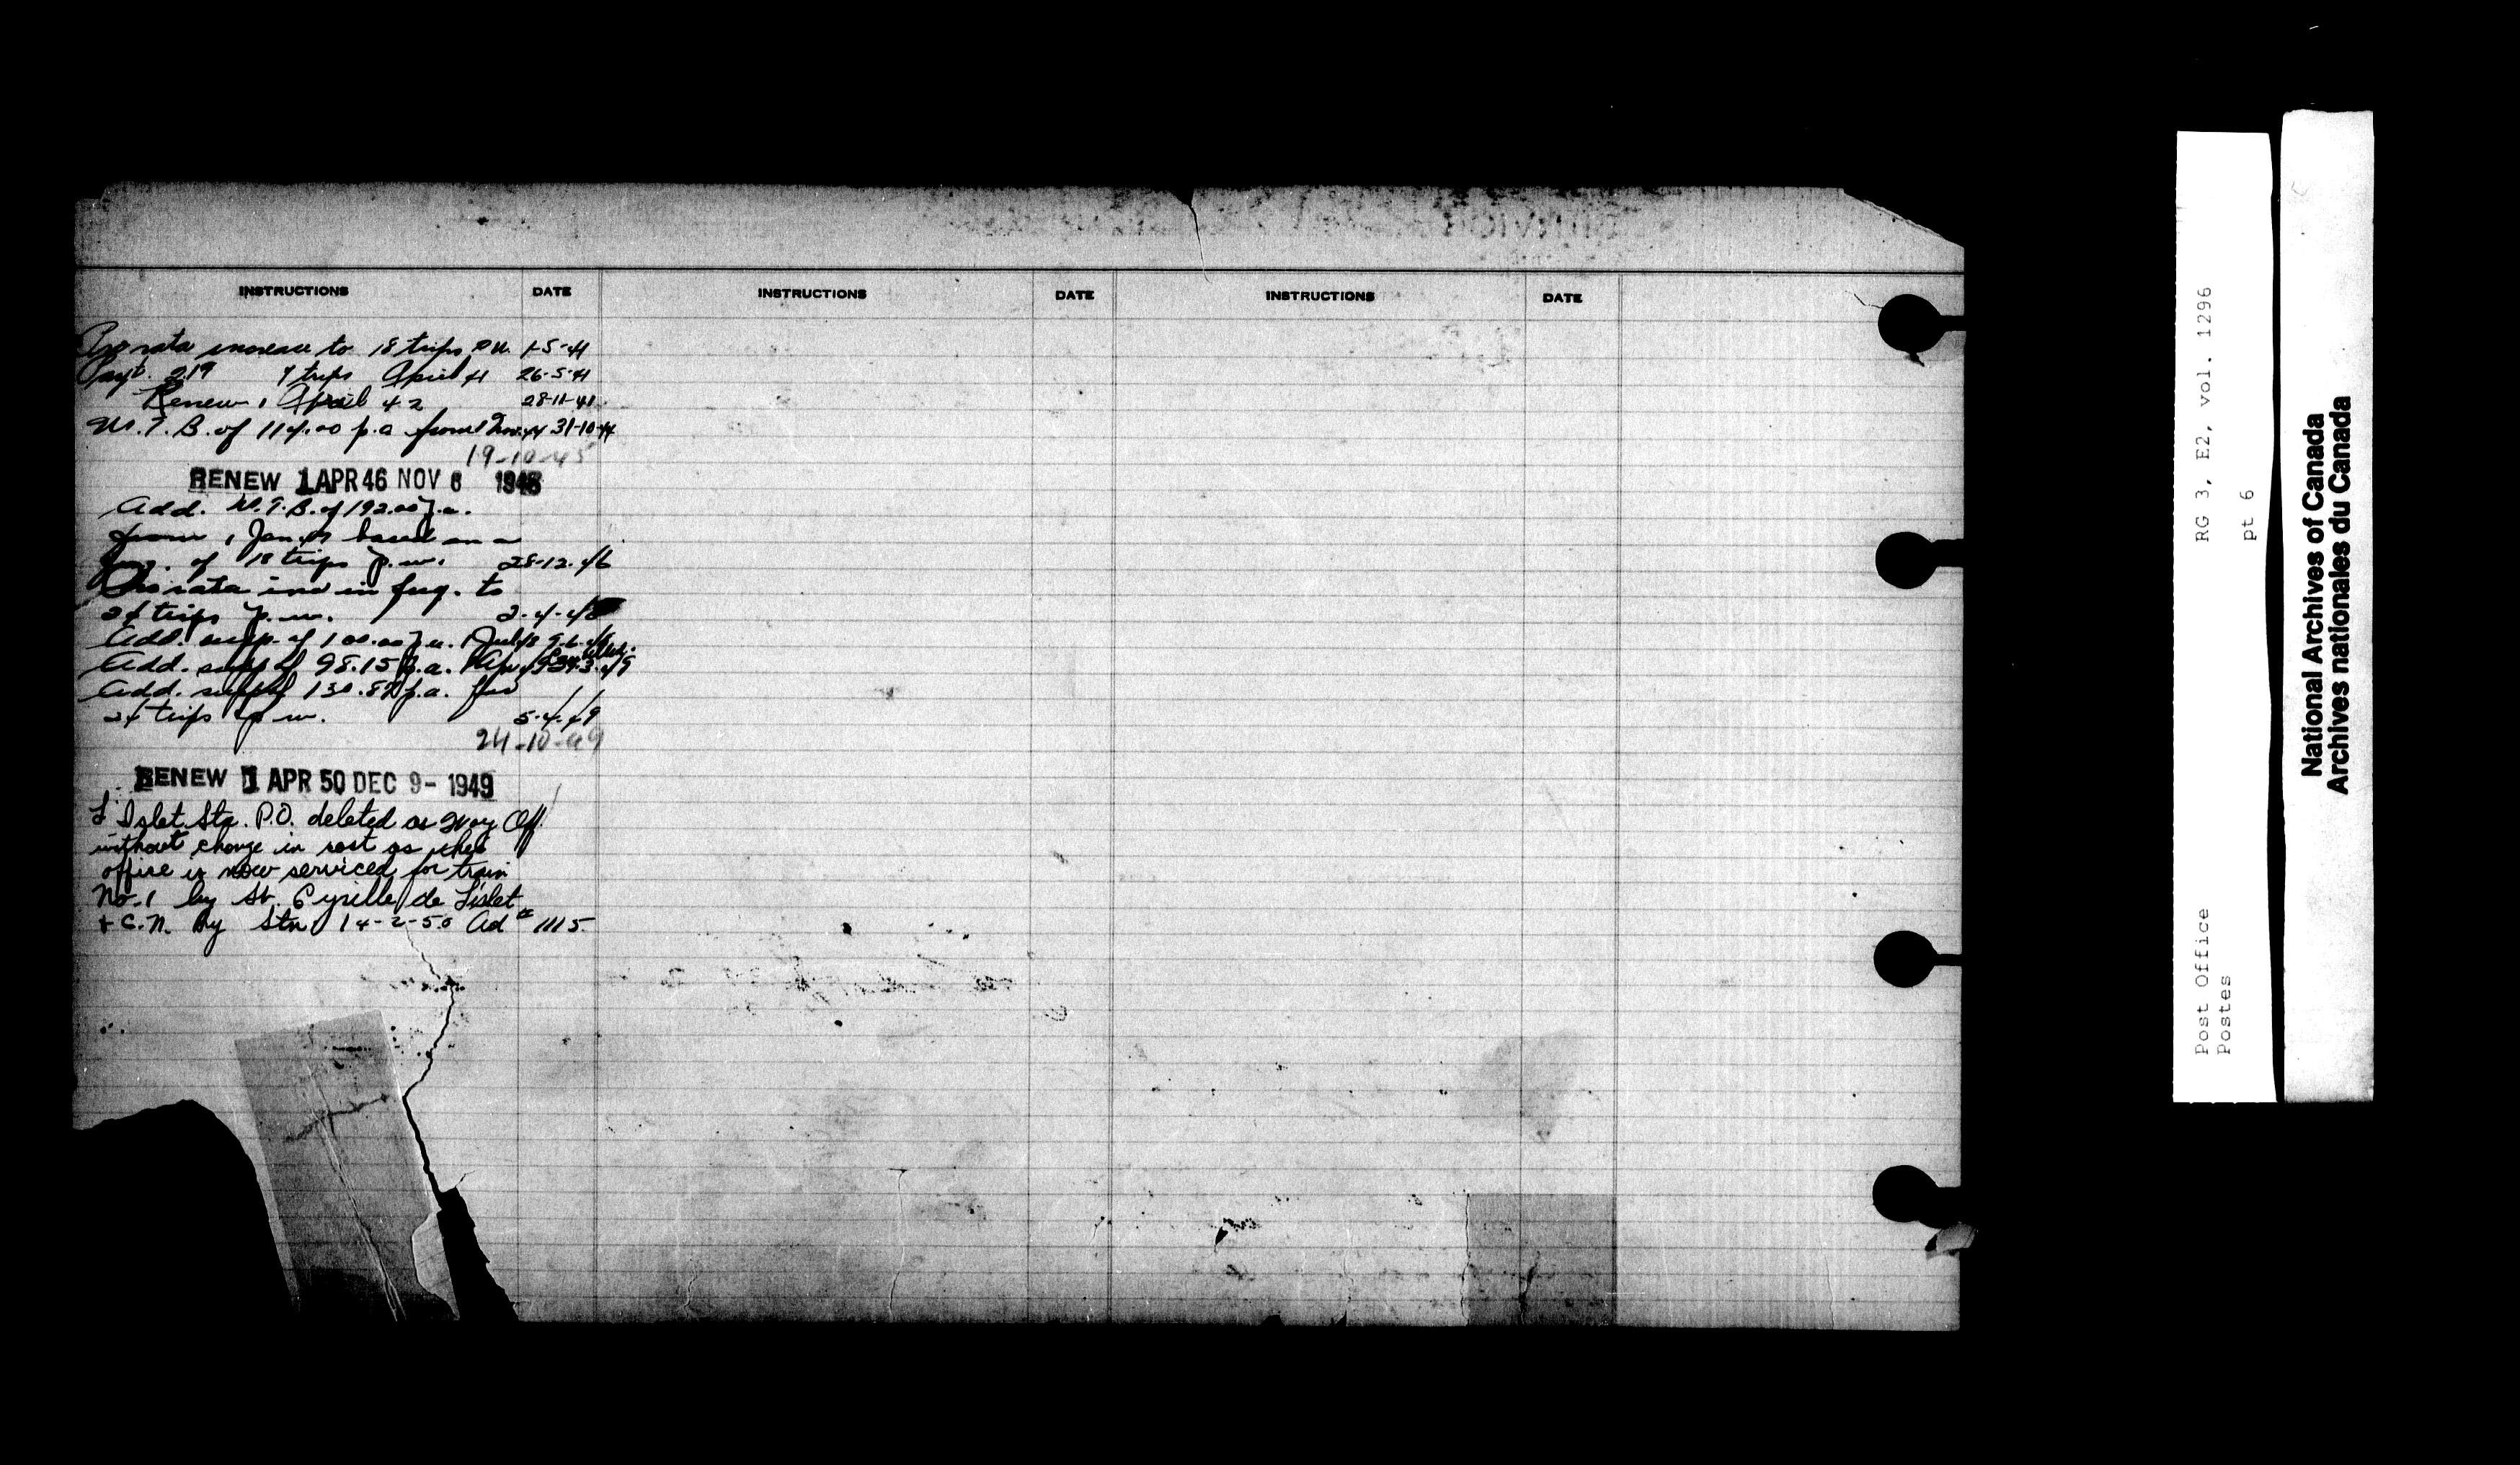 INSTRUCTIONS DATE INSTRUCTIONS DATE INSTRUCTIONS DATE
Pro rata increase to 18 trips p.w. 1-5-41
Payt. 2.19 7 trips April 41 26-5-41
Renew 1 April 42 28-11-41
W.T.B. of 114.00 p.a from 1 Nov. 44 31-10-44
19-10-45
RENEW 1 APR 46 NOV 6
Add. W.T.B. of 192.00 p.a.
from 1 Jan 47 based on a
freq. of 18 trips p.w. 28-12-46
Pro rata incr in freq. to
24 trips p.w. 2-4-48
Add. supp. of 100.00 p.a. 1 July 48
Add. supp of 98.15 p.a. 1 Apr 49 24.3.49
Add. supp of 130.87 p.a. for
24 trips p.w. 5-4-49
24-10-49
RENEW 1 APR 50 DEC 9- 1949
L'Islet Sta. P.O. deleted as Way Off.
without change in cost as
office is now serviced for train
No. 1 by St. Cyrille de L'islet
+ C.N. Ry Stn 14-2-50 Ad # 1115
RG 3, E2, vol. 1296
pt 6
Post Office
Postes
National Archives of Canada
Archives nationales du Canada